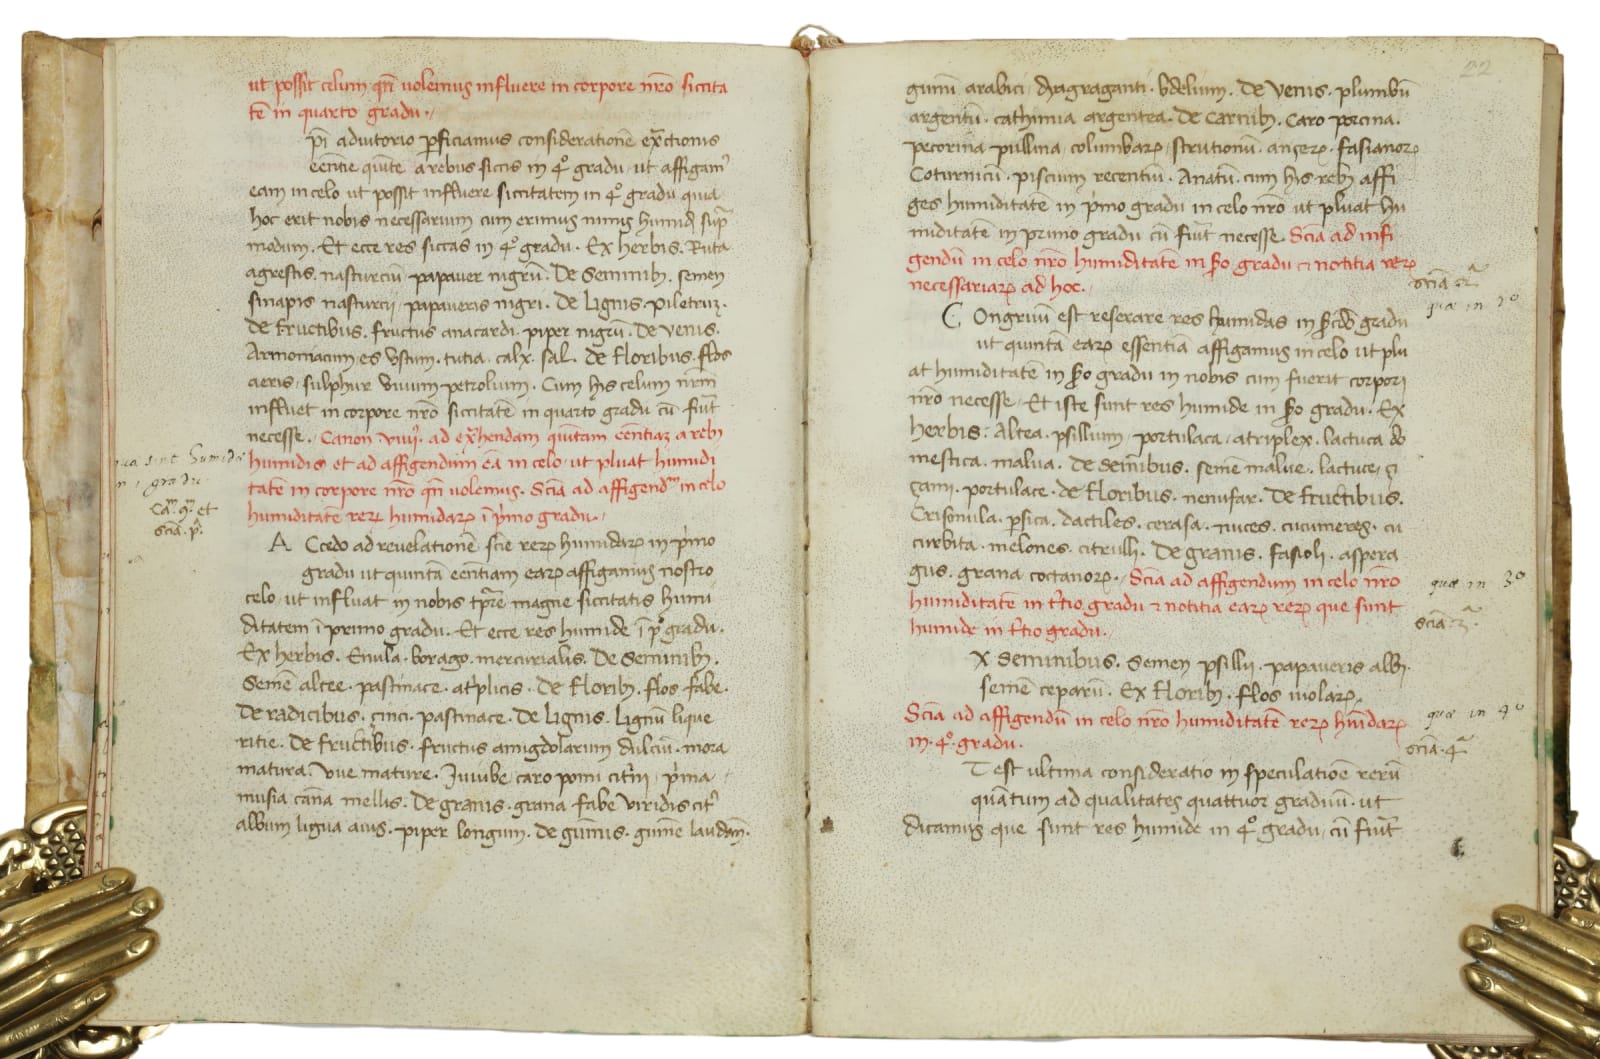 ut possit celum qn̄ uolemus influere in corpore nr̄o siccita
tē in quarto gradu·
p̄i adiutorio ꝑficiamus consideratione exctionis
eēntie quīte a rebus siccis in 4º gradu, ut affigam9
eam in celo ut possit influere siccitatem in 4º gradu quia
hoc erit nobis necessarium cum erimus nimis humidi supra
modum. Et ecce res siccas in 4º gradu. Ex herbis. Ruta
agrestis. nasturciū papauer nigrū. De Seminibꝫ. semen
sinapis nasturcij, papaueris nigri. De lignis. piletrum.
De fructibus. fructus anacardi. piper nigrū. De uenis.
Armoniacum es ustum. tutia. calx. sal. De floribus. flos
aeris, sulphur uiuum petrolium. Cum his celum nr̄m
influet in corpore nr̄o siccitatē in quarto gradu cū fiūt
necesse. Canon viiijº. ad exhendam quītam eēntiaꝫ a rebꝫ
humidis et ad affigendum eā in celo, ut pluat humidi
tatē in corpore nr̄o qn̄ uolemus. Scīa ad affigendᵐ in celo
humiditatē rerꝝ humidarꝝ ī pͥmo gradu.
A Ccedo ad reuelationē scīe rerꝝ humidarꝝ in pͥmo
gradu ut quītā eēntiam earꝝ affigamus nostro
celo, ut influat in nobis tp̄re magne siccitatis humi
ditatem ī primo gradu. Et ecce res humide ī pº gradu.
Ex herbis. Enula. borago. mercurialis. De Seminibꝫ.
Semē altee. pastinace. atͥplicis. De floribꝫ. flos fabe.
De radicibus. çinci. pastinace. De lignis. lignū lique
ritie. De fructibus. fructus amigdolarum dulciū. mora
matura. uue mature. Iuiube, caro pomi citͥni, pͥma,
musia cāna mellis. De granis. grana fabe viridis cit
album ligua auis. piper longum. De gūmis. gūme laudani.
quæ sint humida
in 1 gradu
Caᵐ 9ᵐ et
scīa. pª
22
gumi arabici, dragaganti. bdelium. De uenis. plumbū
argentū. cathimia argentea. De carnibꝫ. caro porcina.
pecorina pullina, columbarꝝ, strutionū. anserꝝ. fasianorꝝ
Coturnicū. pisciūm recentiū. Anatū. cum his rebꝫ affi
ges humiditatē in pͥmo gradu in celo nr̄o ut pluat hu
miditatē in primo gradu cū fiūt necesse. Scīa ad infi
gendū in celo nr̄o humiditatē in Sͦo gradu et notitia rerꝝ
necessariarꝝ ad hoc.
C Ongruū est reserare res humidas in Scd̄o gradu
ut quintā earꝝ essentiā affigamus in celo ut plu
at humiditatē in Sͦo gradu in nobis cum fuerit corpori
nr̄o necesse. Et iste sunt res humide in Sͦo gradu. Ex
herbis: Altea. psillium. portulaca, atriplex. lactuca do
mestica. malua. De seminibus. semē malue. lactuce, si
çami. portulace. de floribus. nenufar. De fructibus.
Crisomila. psica. dactiles. cerasa. nuces. cucumeres. cu
curbita. melones. citrulli. De granis. fasioli. aspera
gus. grana coctanorꝝ. Scīa ad affigendum in celo nr̄o
humiditatē in tͥtio gradu et notitia earꝝ rerꝝ que sunt
humide in tͥtio gradu.
X seminibus. Semen psillii. papaueris albi.
semē ceparū. Ex floribꝫ. flos uiolarꝝ.
Scīa ad affigendū in celo nr̄o humiditatē rerꝝ hūidarꝝ
in. 4º. gradu.
T est ultima consideratio in speculatiōe rerū
quātum ad qualitates quattuor graduū. ut
dicamus que sunt res humide in 4º gradu, cū fiūt
scīa 2ª
quæ in 2º
quæ in 3º
scīa 3ª
quæ in 4º
scīa. 4ª